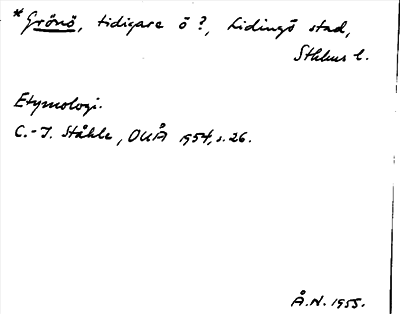 * Grönö, tidigare ö?, Lidingö stad,
Sthlms l.
Etymologi.
C.-I. Ståhle, OUÅ 1954, s. 26.
Å.N. 1955.